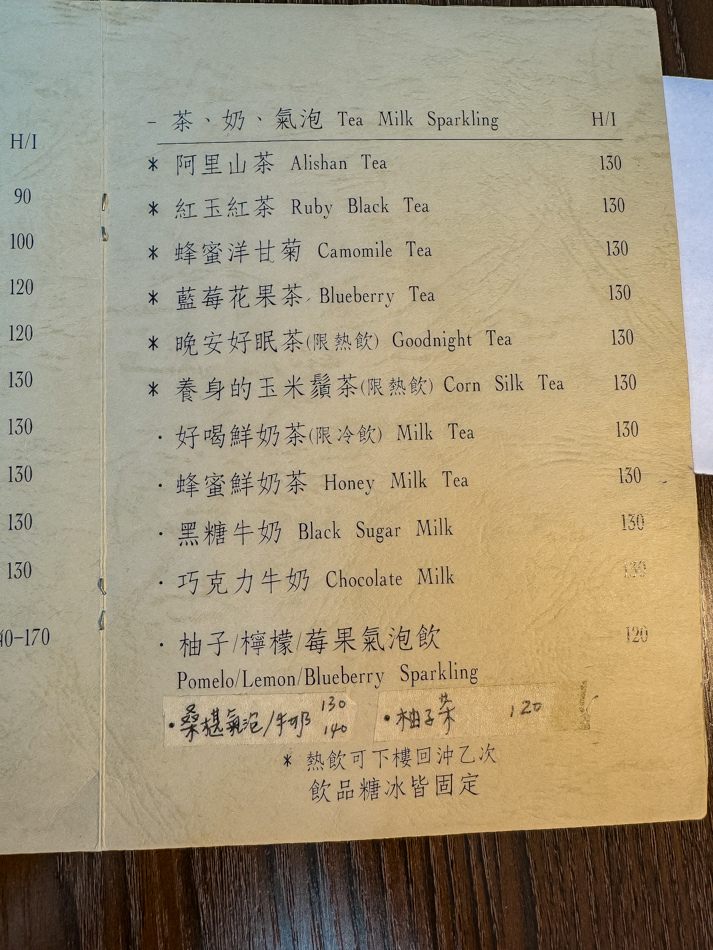 H/I
90
100
120
120
130
130
130
130
130
0-170
– 茶、奶、氣泡 Tea Milk Sparkling H/I
* 阿里山茶 Alishan Tea 130
* 紅玉紅茶 Ruby Black Tea 130
* 蜂蜜洋甘菊 Camomile Tea 130
* 藍莓花果茶 Blueberry Tea 130
* 晚安好眠茶(限熱飲) Goodnight Tea 130
* 養身的玉米鬚茶(限熱飲) Corn Silk Tea 130
· 好喝鮮奶茶(限冷飲) Milk Tea 130
· 蜂蜜鮮奶茶 Honey Milk Tea 130
· 黑糖牛奶 Black Sugar Milk 130
· 巧克力牛奶 Chocolate Milk 130
· 柚子/檸檬/莓果氣泡飲 120
Pomelo/Lemon/Blueberry Sparkling
• 桑椹氣泡/牛奶 130 140
• 柚子茶 120
* 熱飲可下樓回沖乙次
飲品糖冰皆固定